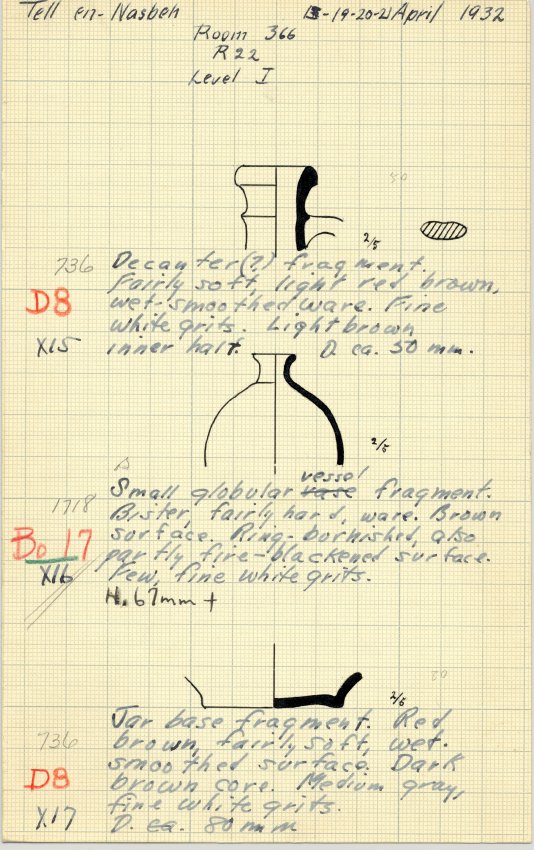 Tell en-Nasbeh 19-20-21 April 1932
Room 366
R 22
Level I
2/5
736 Decanter(?) fragment.
Fairly soft, light red brown,
D8 wet-smoothed ware. Fine
white grits. Light brown
X15 inner half. D. ca. 50 mm.
2/5
Small globular vase vessel fragment.
1718 Bister, fairly hard, ware. Brown
surface. Ring-burnished, also
Bo 17 partly fire-blackened surface.
X16 Few, fine white grits.
H. 67mm +
2/5
Jar base fragment. Red
736 brown, fairly soft, wet-
smoothed surface. Dark
D8 brown core. Medium gray,
fine white grits.
X17 D. ca. 80 mm